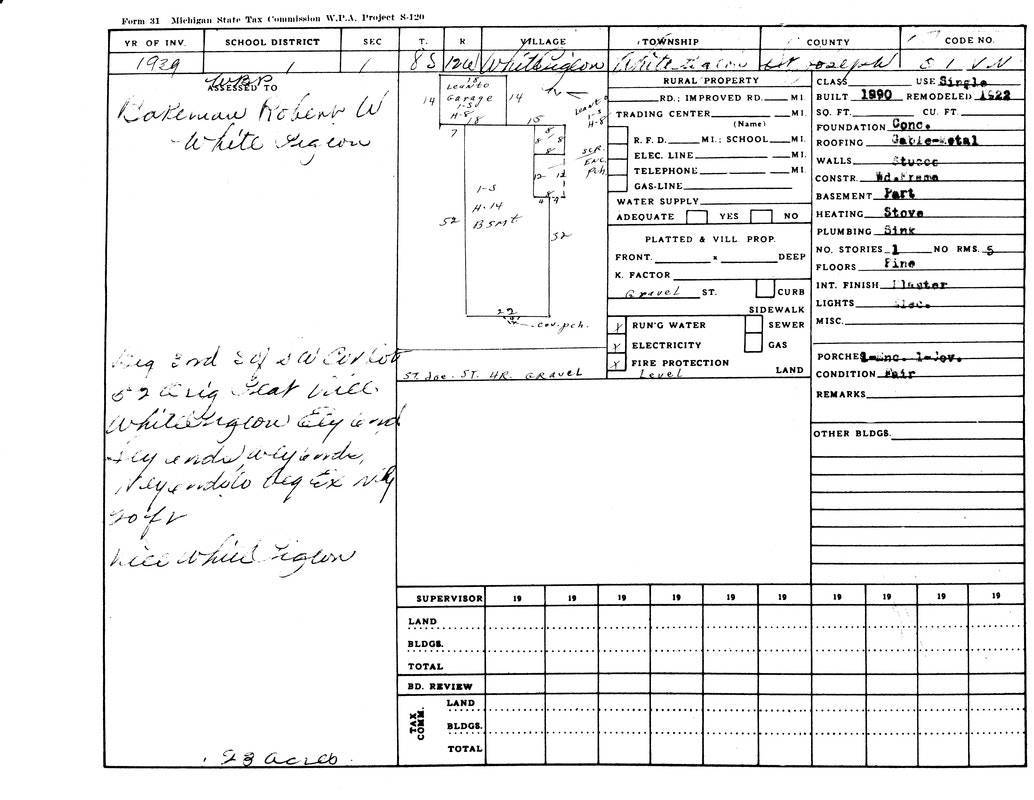 Form 31 Michigan State Tax Commission W.P.A. Project S-120
YR OF INV. SCHOOL DISTRICT SEC T. R VILLAGE TOWNSHIP COUNTY CODE NO.
1939 1 1 8S 12W White Pigeon White Pigeon St Joseph
ASSESSED TO
Bakeman Robert W
White Pigeon
Beg 2nd
52 Orig Plat Vill
White Pigeon Ely
Sly Wly
Nly to Beg Ex Nly
20 ft
Vill White Pigeon
.23 acres
18
Lean to
Garage
1-S
H-8
14 14
18
7
15
Lean to
1-S
H-8
8 8
8
SCR.
ENC.
Pch.
12 12
8
4 4
1-S
H-14
BSMT
52
32
22
cov. pch.
ST. Joe. ST. HR. GRAVEL
RURAL PROPERTY
RD.; IMPROVED RD. MI.
TRADING CENTER MI.
(Name)
R. F. D. MI.; SCHOOL MI.
ELEC. LINE MI.
TELEPHONE MI.
GAS-LINE
WATER SUPPLY
ADEQUATE YES NO
PLATTED & VILL PROP.
FRONT. x DEEP
K. FACTOR
Gravel ST. CURB
SIDEWALK
X RUN'G WATER SEWER
X ELECTRICITY GAS
X FIRE PROTECTION
Level LAND
CLASS USE Single
BUILT 1890 REMODELED 1922
SQ. FT. CU. FT.
FOUNDATION Conc.
ROOFING Gable-Metal
WALLS Stucco
CONSTR. Wd.Frame
BASEMENT Part
HEATING Stove
PLUMBING Sink
NO. STORIES 1 NO RMS. 5
FLOORS Pine
INT. FINISH Plaster
LIGHTS Elec.
MISC.
PORCHES 1-Enc. 1-Cov.
CONDITION Fair
REMARKS
OTHER BLDGS.
SUPERVISOR 19 19 19 19 19 19 19 19 19 19
LAND
BLDGS.
TOTAL
BD. REVIEW
TAX COMM.
LAND
BLDGS.
TOTAL